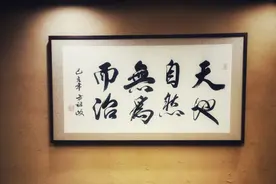 天地
自然
無為
而治
己亥年